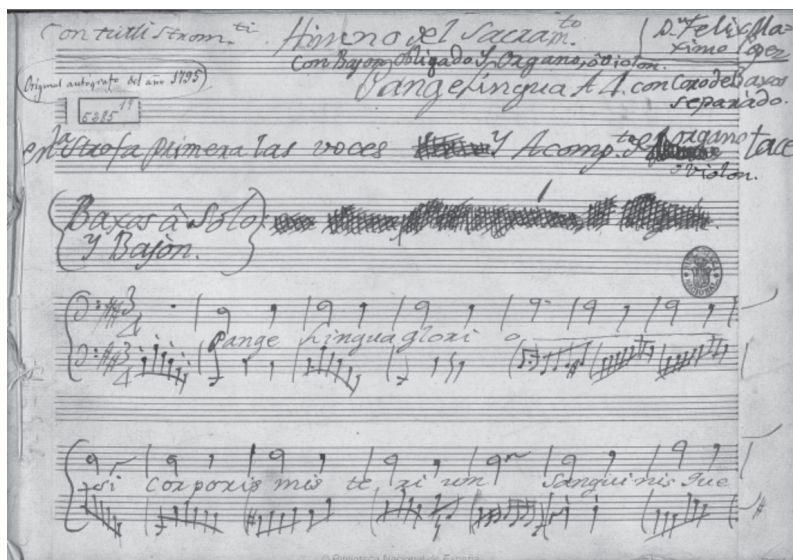 Con tutti strom.ti Himno del Sacram.to D.n Felix Ma-
ximo Lopez
Con Bajon obligado Y Organo, ò violon.
Original autografo del año 1795
Pange Lingua A 4. con Coro de Baxos
separàdo.
19
5385
en la Strofa primera las voces Y Acomp.to de organo tace
ò violon.
Baxos â Solo
Y Bajòn.
Pange Lingua glori o
si Corporis mis te ri um Sanguinis que
© Biblioteca Nacional de España